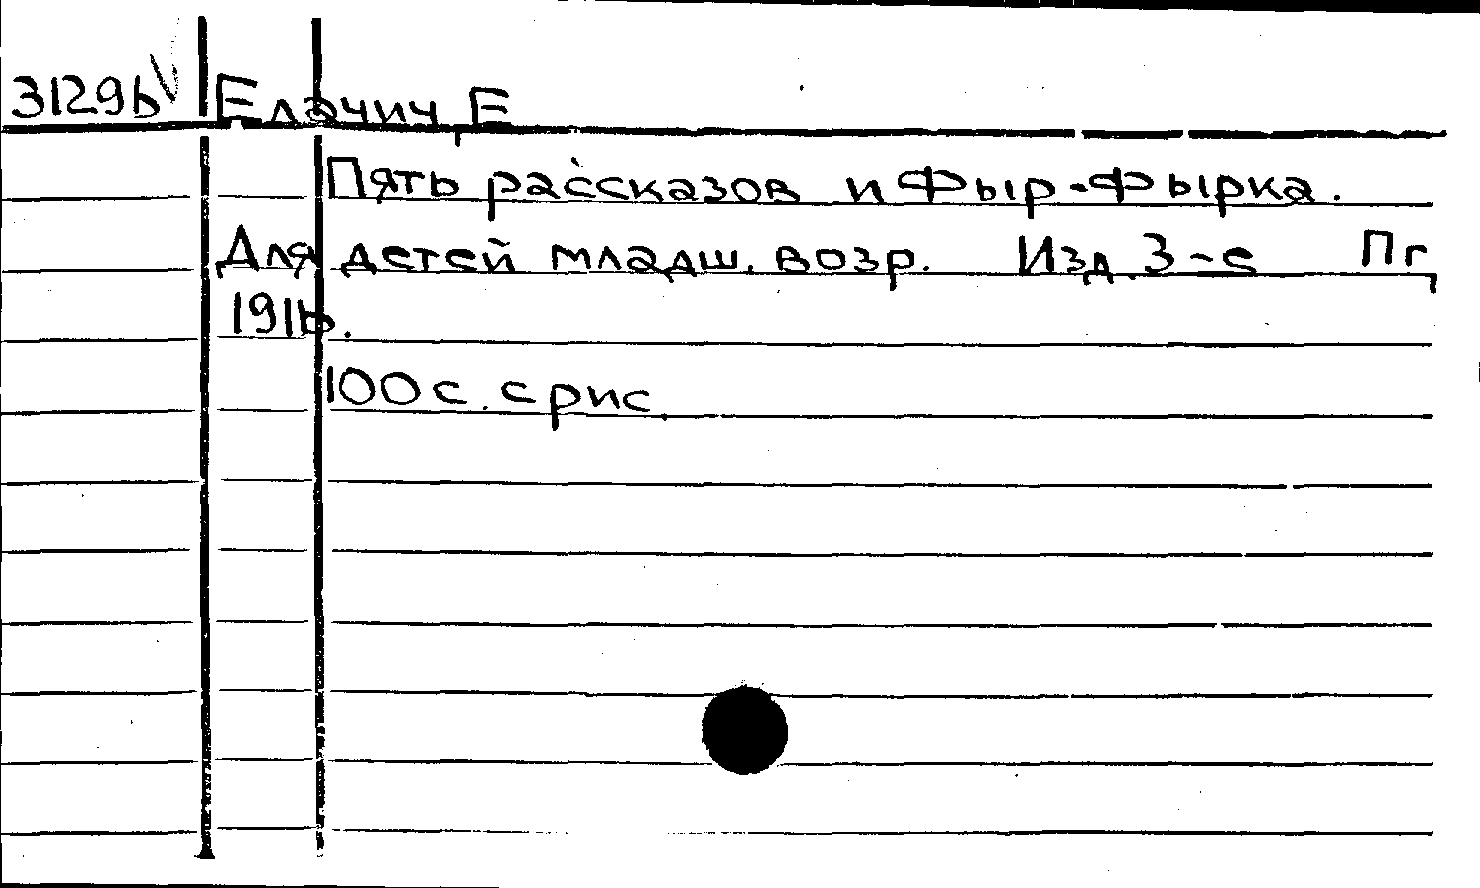 31296 Елачич, Е
Пять рассказов и Фыр-Фырка.
Для детей младш. возр. Изд. 3-е Пг,
1916.
100 с. с рис.